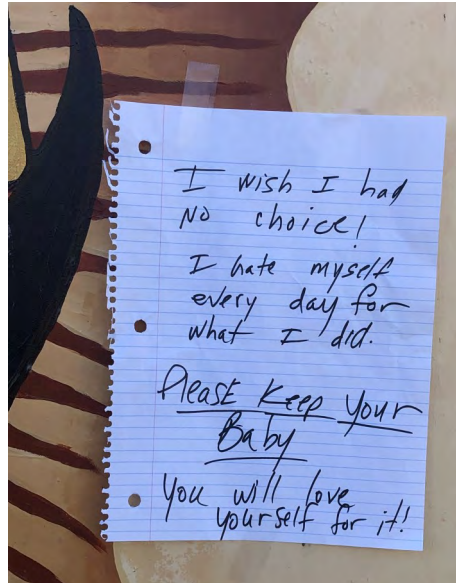 I wish I had
NO choice!
I hate myself
every day for
what I did.
Please Keep Your
Baby
You will love
yourself for it!